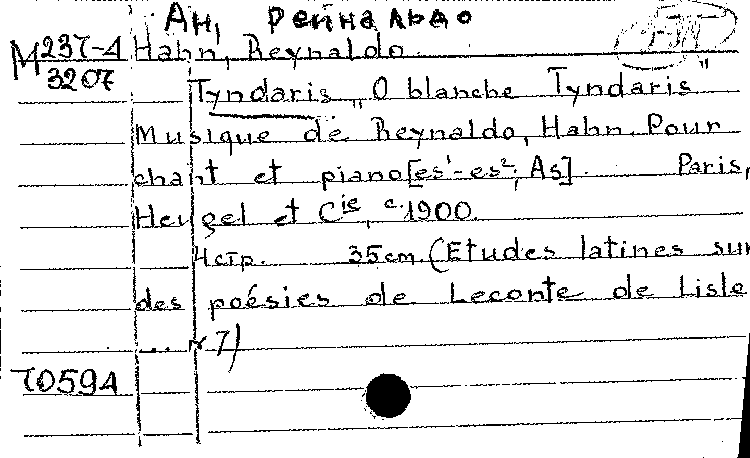 Ан, Рейнальдо
M 237-4
3207
Hahn, Reynaldo.
Tyndaris „O blanche Tyndaris"
Musique de Reynaldo, Hahn. Pour
chant et piano [es¹-es²; As]. Paris,
Heugel et Cie, c.1900.
4 стр. 35 cm. (Etudes latines sur
des poésies de Leconte de Lisle
... N 7)